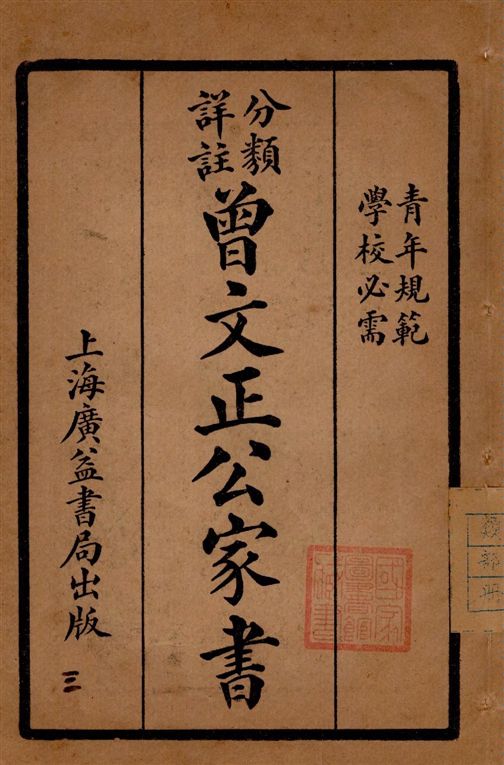 青年規範
學校必需
分類
詳註
曾文正公家書
上海廣益書局出版
三
國家圖書館藏書
部冊